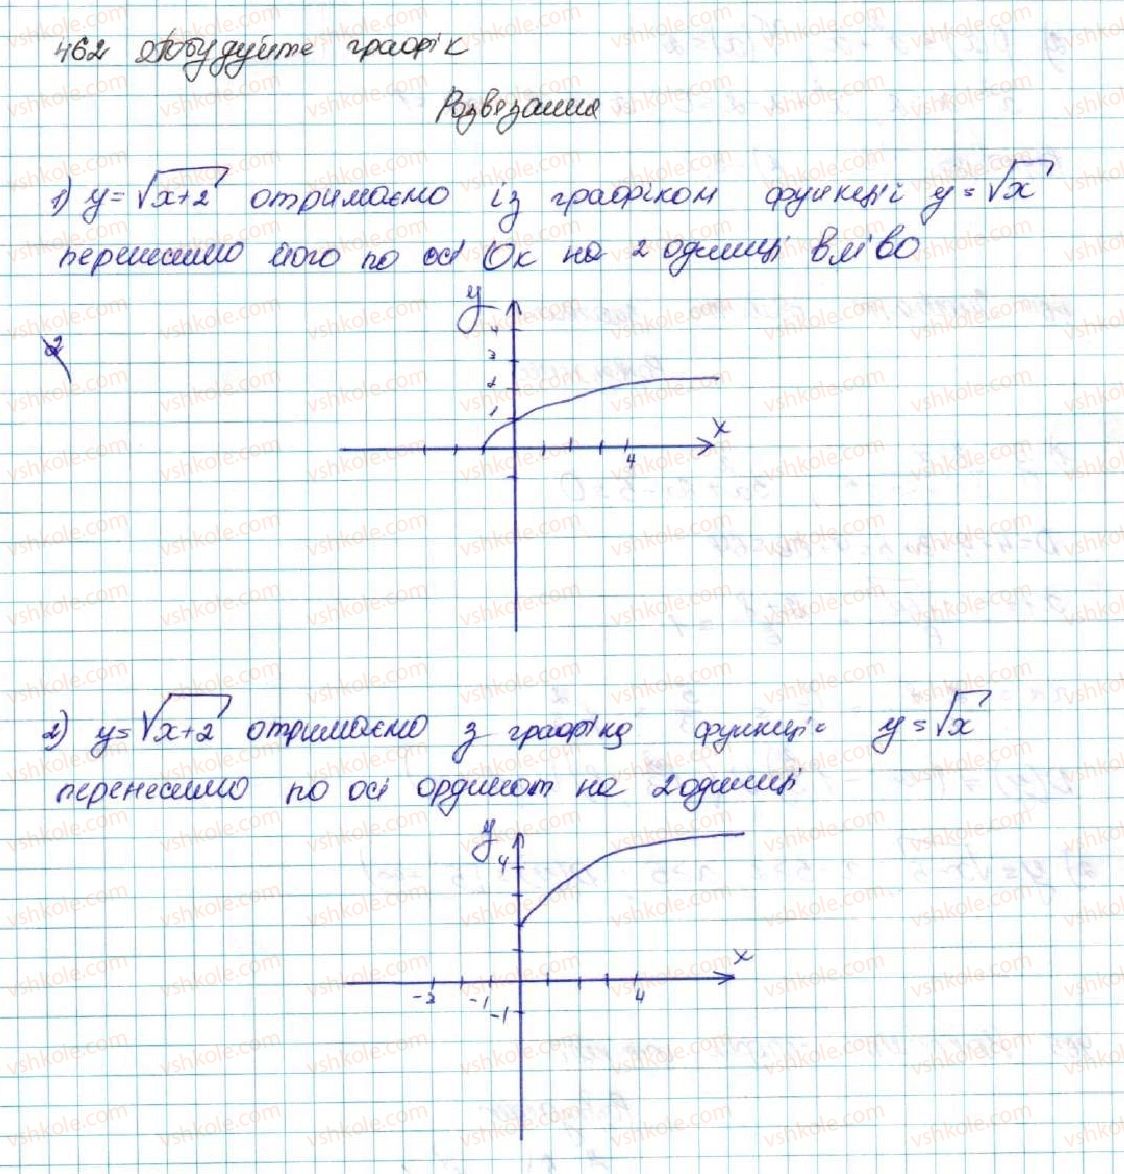 462 Побудуйте графік
Розв'язання
1) y=√x+2 отримаємо із графіком функції y=√x
перенесимо його по осі Ox на 2 одиниці вліво
y
4
3
2
1
x
4
2
2) y=√x+2 отримаємо з графіка функціє y=√x
перенесимо по осі ординат на 2 одиниці
y
4
x
-3
-1
4
-1